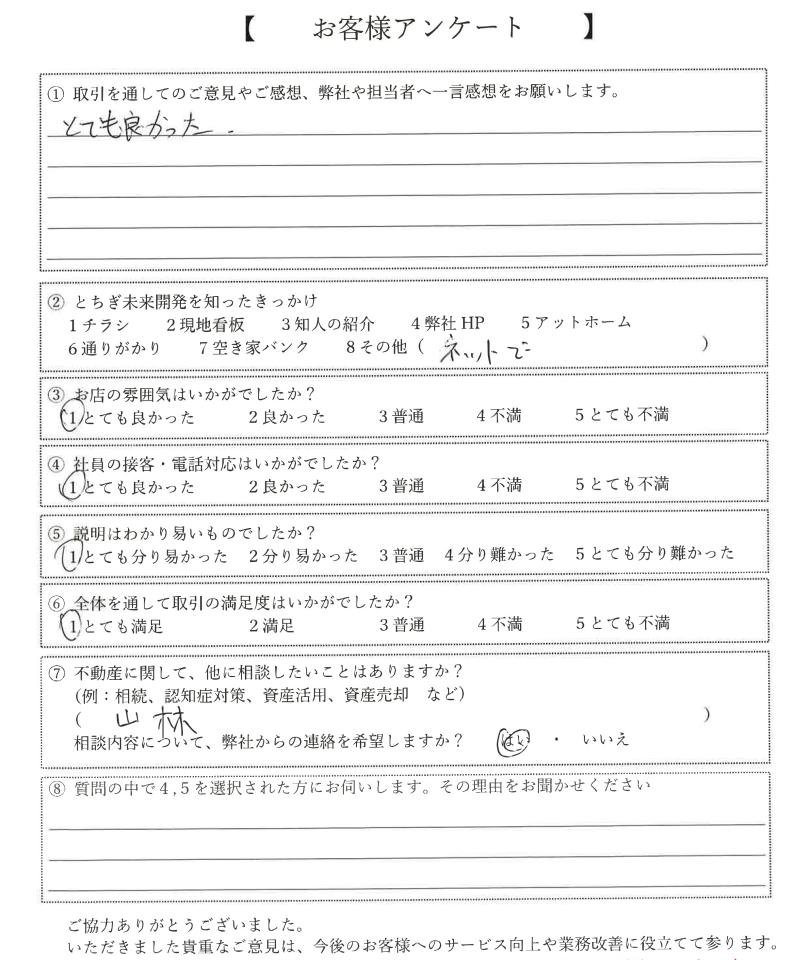 【 お客様アンケート 】
① 取引を通してのご意見やご感想、弊社や担当者へ一言感想をお願いします。
とても良かった.
② とちぎ未来開発を知ったきっかけ
1 チラシ 2 現地看板 3 知人の紹介 4 弊社 HP 5 アットホーム
6 通りがかり 7 空き家バンク 8 その他 ( ネットで )
③ お店の雰囲気はいかがでしたか？
1 とても良かった 2 良かった 3 普通 4 不満 5 とても不満
④ 社員の接客・電話対応はいかがでしたか？
1 とても良かった 2 良かった 3 普通 4 不満 5 とても不満
⑤ 説明はわかり易いものでしたか？
1 とても分り易かった 2 分り易かった 3 普通 4 分り難かった 5 とても分り難かった
⑥ 全体を通して取引の満足度はいかがでしたか？
1 とても満足 2 満足 3 普通 4 不満 5 とても不満
⑦ 不動産に関して、他に相談したいことはありますか？
（例：相続、認知症対策、資産活用、資産売却 など）
( 山林 )
相談内容について、弊社からの連絡を希望しますか？ はい ・ いいえ
⑧ 質問の中で 4 , 5 を選択された方にお伺いします。その理由をお聞かせください
ご協力ありがとうございました。
いただきました貴重なご意見は、今後のお客様へのサービス向上や業務改善に役立てて参ります。